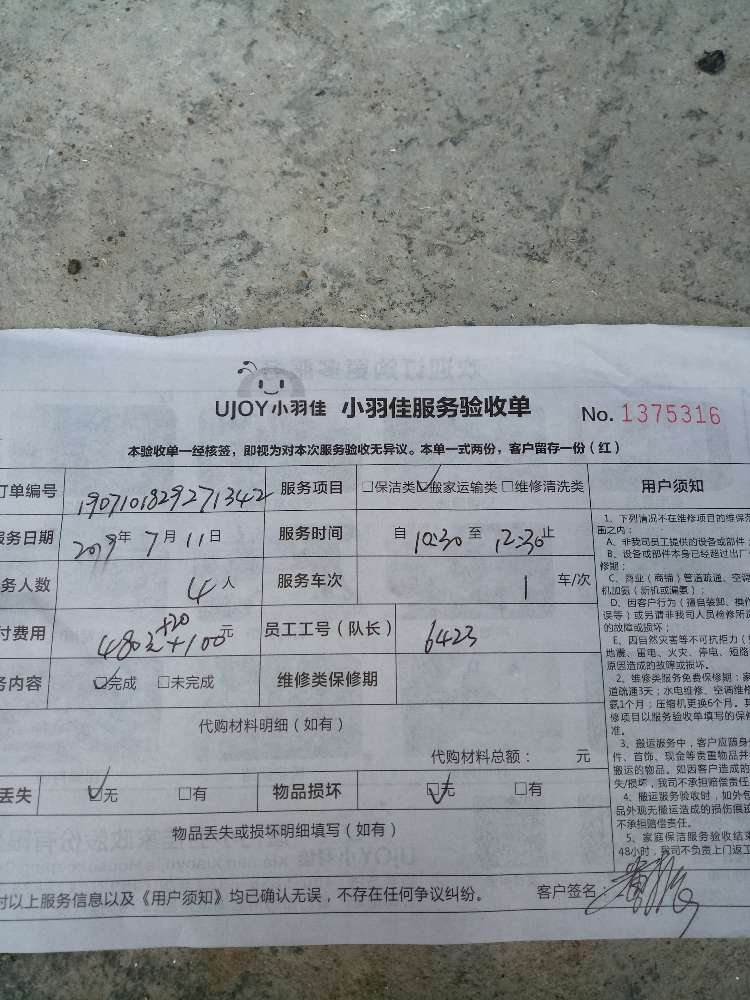 UJOY小羽佳 小羽佳服务验收单 No. 1375316
本验收单一经核签，即视为对本次服务验收无异议。本单一式两份，客户留存一份（红）
订单编号 1907101829271342 服务项目 □保洁类 ☑搬家运输类 □维修清洗类
服务日期 2019年 7 月 11 日 服务时间 自 10:30 至 12:30 止
务人数 4 人 服务车次 1 车/次
付费用 480元+20+100元 员工工号（队长） 6423
务内容 ☑完成 □未完成 维修类保修期
代购材料明细（如有）
代购材料总额： 元
丢失 ☑无 □有 物品损坏 ☑无 □有
物品丢失或损坏明细填写（如有）
对以上服务信息以及《用户须知》均已确认无误，不存在任何争议纠纷。 客户签名：
用户须知
1、下列情况不在维修项目的维保范
围之内：
A、非我司员工提供的设备或部件；
B、设备或部件本身已经超过出厂
修期；
C、商业（商铺）管道疏通、空调
机加氨（新机或漏氨）；
D、因客户行为（擅自装卸、操作
误等）或另请非我司人员检修所造
的故障或损坏；
E、因自然灾害等不可抗拒力（
地震、雷电、火灾、停电、短路
原因造成的故障或损坏。
2、维修类服务免费保修期：家
道疏通3天；水电维修、空调维修
氨1个月；压缩机更换6个月。其
修项目以服务验收单填写的保修
准。
3、搬运服务中，客户应随身
件、首饰、现金等贵重物品并
搬运的物品。如因客户造成的
失/损坏，我司不承担赔偿责任
4、搬运服务验收时，如外包
品外观无搬运造成的损伤痕迹
不承担赔偿责任。
5、家庭保洁服务验收结束
48小时，我司不负责上门返工